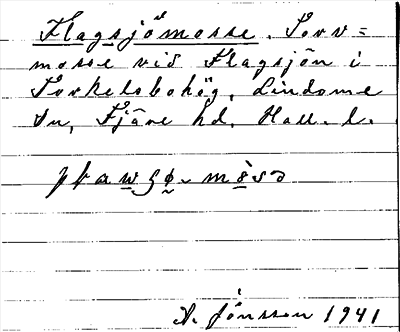 Flagsjömosse. Torv=
mosse vid Flagsjön i
Torkelsbohög, Lindome
sn, Fjäre hd. Hall. l.
A. Jönsson 1941